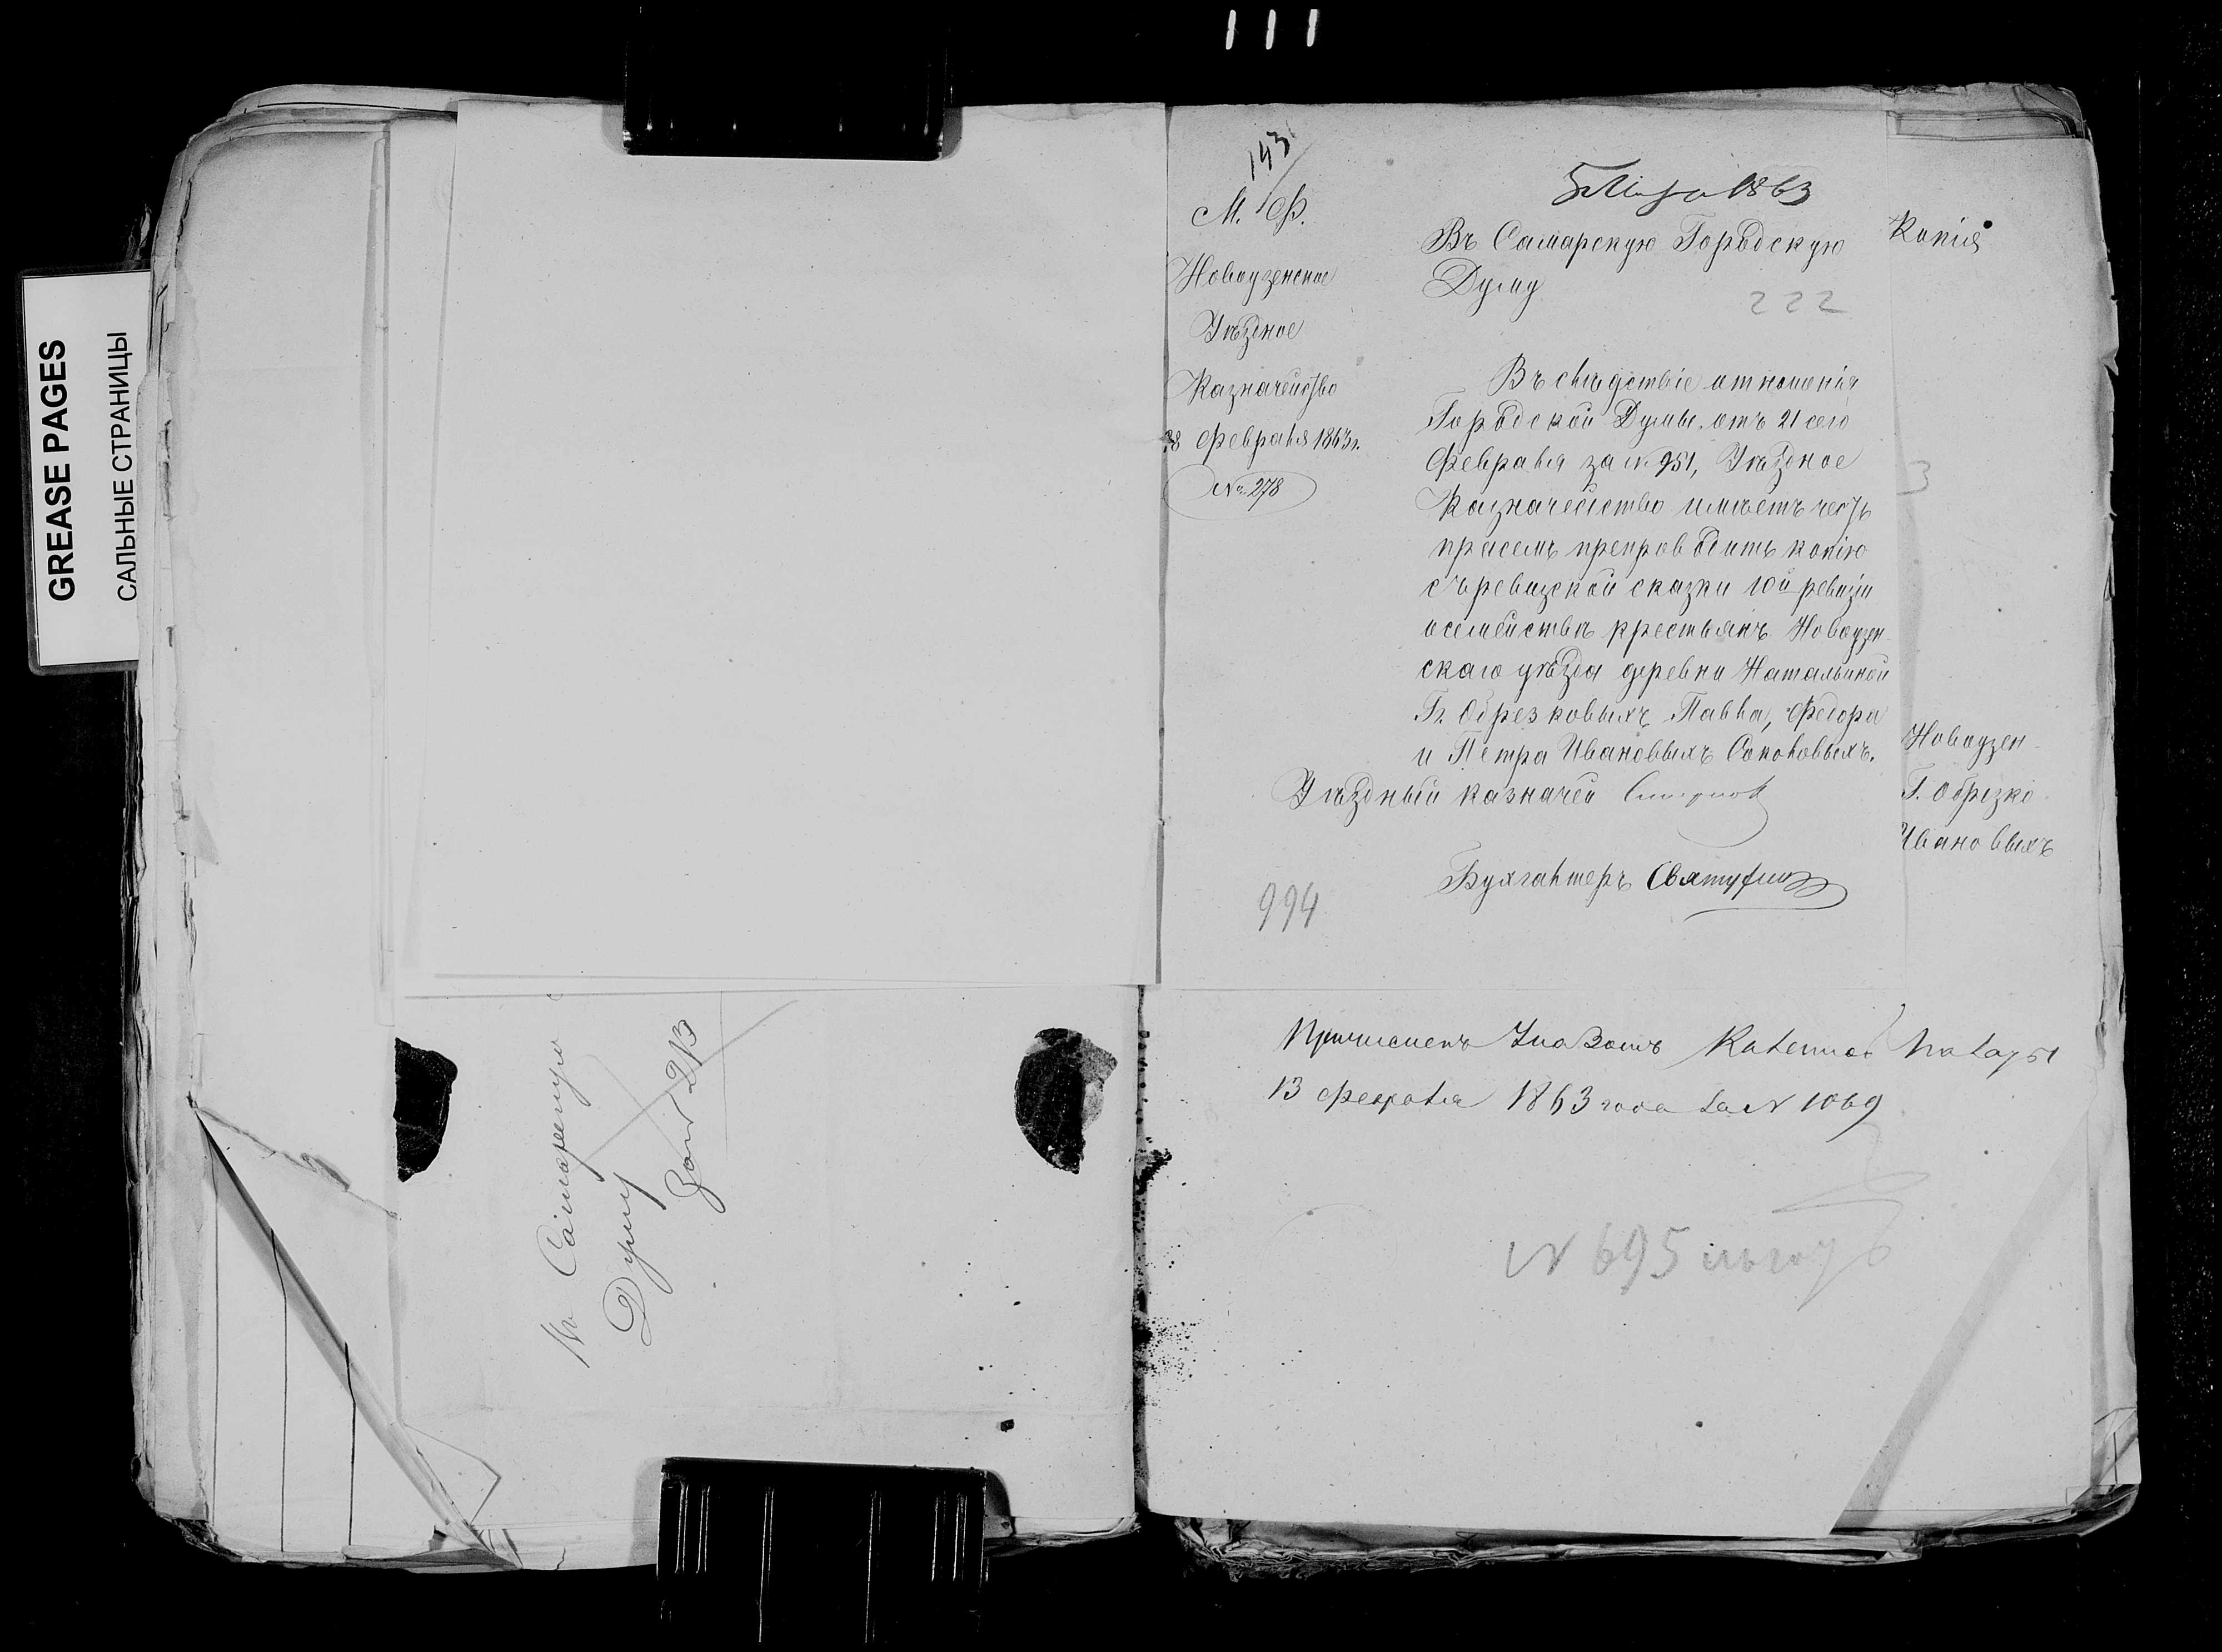 GREASE PAGES
САЛЬНЫЕ СТРАНИЦЫ
Въ Самарскую
Думу
143
М. Ф.
Новоузенское
Уѣздное
Казначейство
28 февраля 1863 г.
№ 278
5 Марта 1863
Въ Самарскую Городскую
Думу
222
Въ слѣдствіе отношенія
Городской Думы отъ 21 сего
Февраля за № 951, Уѣздное
Казначейство имѣетъ честь
при семъ препроводить копію
съ ревизской сказки 10й ревизіи
о семействѣ крестьянъ Новоузен-
скаго уѣзда деревни Натальиной
Гг. Обрезковыхъ Павла, Федора
и Петра Ивановыхъ Соколовыхъ.
Уѣздный казначей Смирнов
Бухгалтеръ
994
Копія
3
Новоузен-
Г. Обрезко
Ивановыхъ
Причислены Указомъ Казенной Палаты
13 Февраля 1863 года за № 1069
№ 695